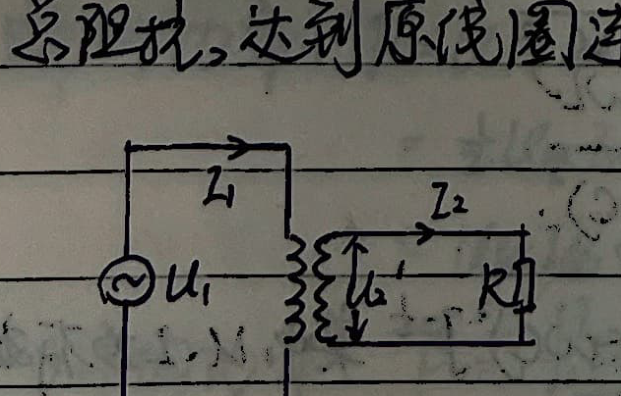 总阻抗,达到原线圈
I₁
I₂
U₁
U₂'
R